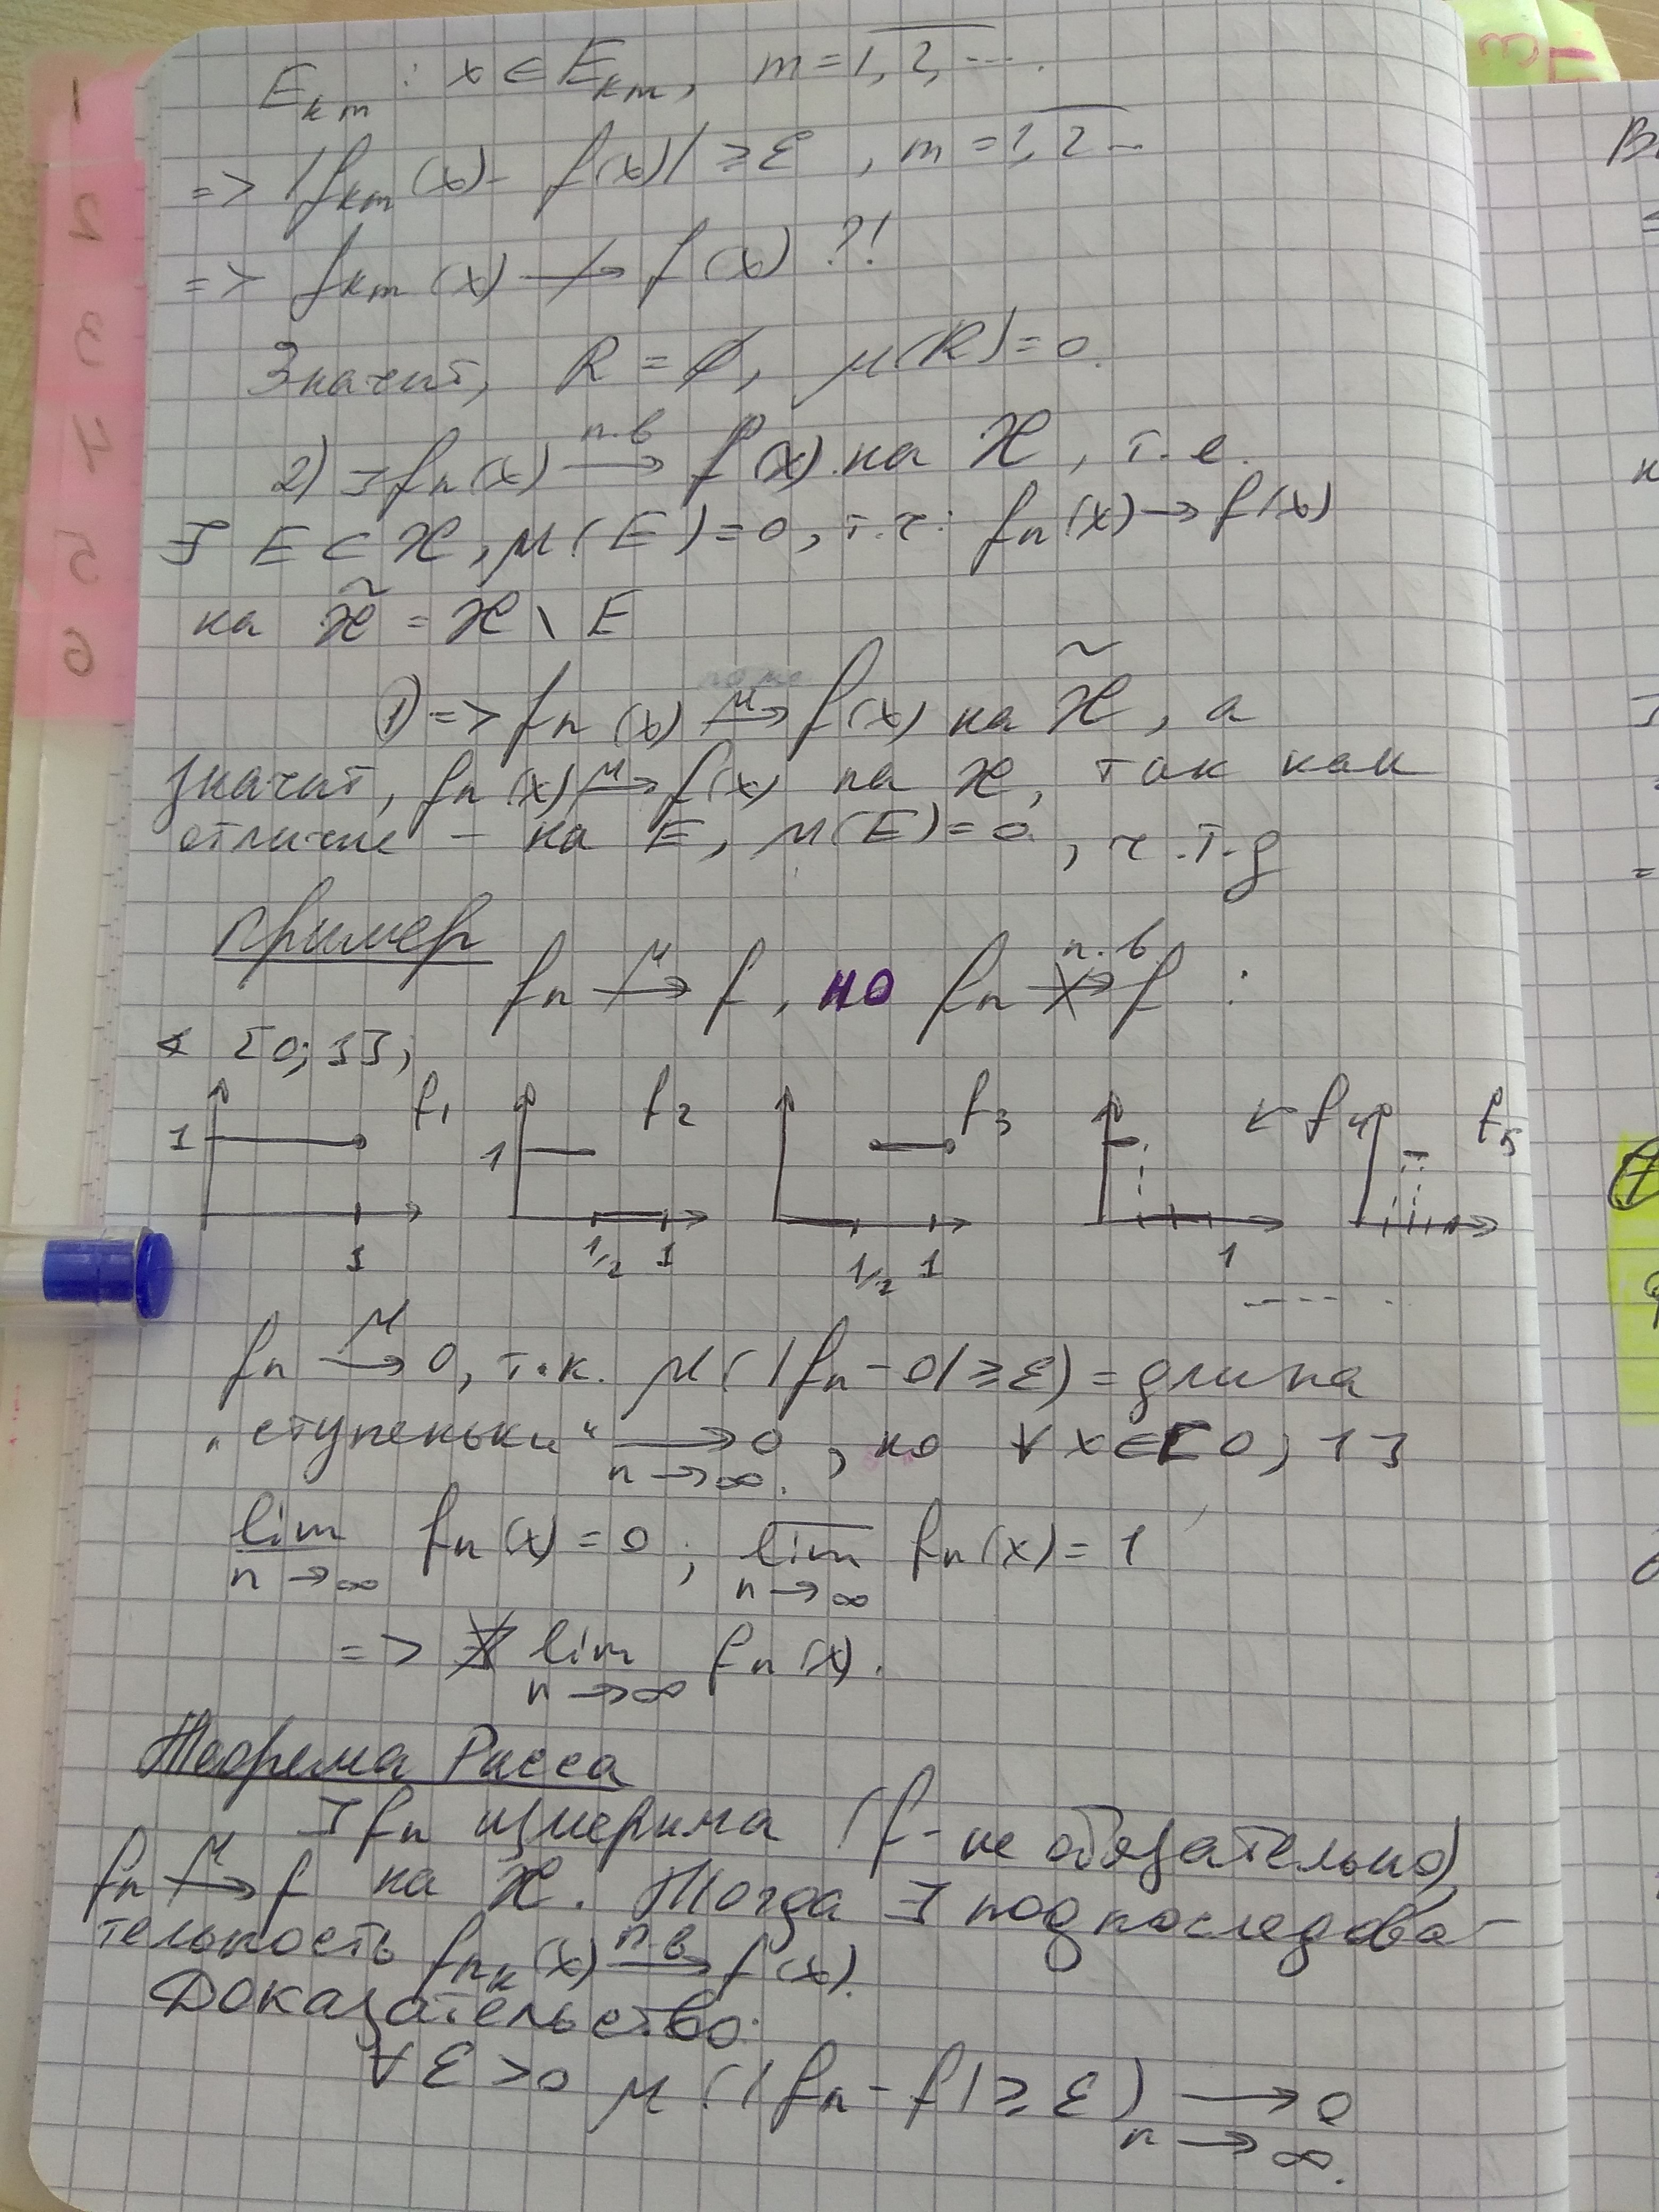 E_km : x ∈ E_km, m = 1, 2, ... .
=> |f_km(x) - f(x)| ≥ ε , m = 1, 2 ...
=> f_km(x) ↛ f(x) ?!
Значит, R = ∅, μ(R) = 0.
2) ⊐ f_n(x) п.в → f(x) на X, т.е.
∃ E ⊂ X, μ(E) = 0, т.ч: f_n(x) → f(x)
на X̃ = X \ E
① => f_n(x) μ→ f(x) на X̃, а
значит, f_n(x) μ→ f(x) на X, так как
отличие - на E, μ(E) = 0, ч.т.д
Пример
f_n μ→ f, но f_n п.в. ↛ f :
∢ [0; 1];
f_1 f_2 f_3 f_4 f_5
1 1
1 1/2 1 1/2 1 1
f_n μ→ 0, т.к. μ(|f_n - 0| ≥ ε) = длина
„ступеньки" → 0 n→∞. , но ∀ x ∈ [0; 1]
lim f_n(x) = 0 ; lim f_n(x) = 1
n→∞ n→∞
=> ∄ lim f_n(x).
n→∞
Теорема Рисса
⊐ f_n измерима (f - не обязательно),
f_n μ→ f на X. Тогда ∃ подпоследова-
тельность f_nk(x) п.в → f(x).
Доказательство:
∀ ε > 0 μ(|f_n - f| ≥ ε) → 0
n→∞.
1
2
3
4
5
6